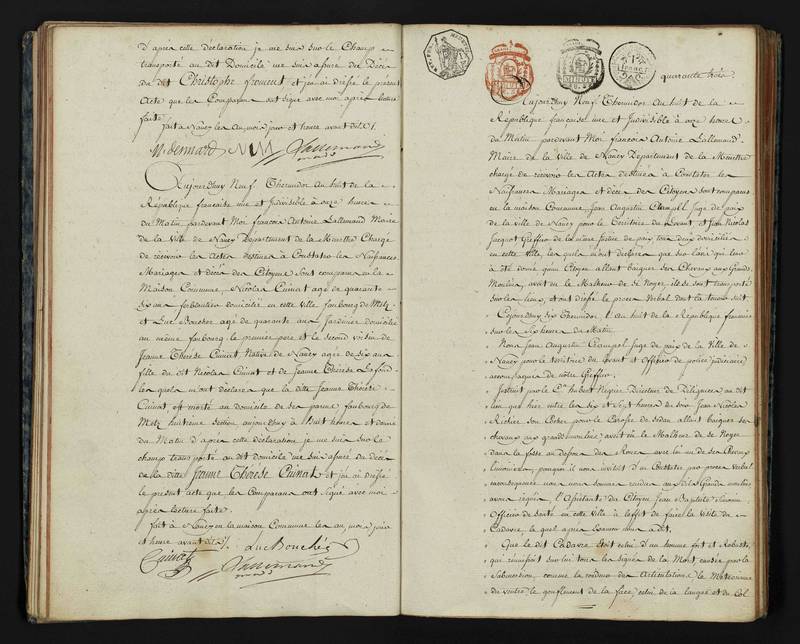 d'après cette déclaration je me suis sur le Champ
transporté au dit Domicile me suis assuré du Décès
du dit Christophe froment et j'ai dressé le présent
Acte que les Comparans ont signé avec moi après lecture
faite
fait à Nancy les an, mois, jour et heure avant dits
M. bernard Lallemand
maire
Aujourdhuy Neuf Thermidor An huit de la
République francaise une et Indivisible à onze heures
du Matin pardevant Moi francois Antoine Lallemand Maire
de la Ville de Nancy Departement de la Meurthe Chargé
de recevoir les Actes destinés à Constater les Naissances
Mariages et décès des Citoyens Sont comparus en la
Maison Commune, Nicolas Cuinat agé de quarante
six ans ferblantier domicilié en cette Ville faubourg de Metz
et Luc Bouchér agé de quarante ans Jardinier domicilié
au même faubourg le premier pere et le second voisin de
Jeanne Therèse Cuinat Native de Nancy agée de six ans
fille du dit Nicolas Cuinat et de Jeanne Thérèse Lafond
lesquels m'ont déclaré que la ditte Jeanne Thérèse
Cuinat est morte au domicile de ses parens faubourg de
Metz huitieme Section aujourdhuy à huit heures et demie
du Matin d'après cette déclaration je me suis sur le
champ transporté au dit domicile me suis assuré du décès
de la ditte Jeanne Thérèse Cuinat et j'ai dressé
le present acte que les Comparans ont signé avec moi
après lecture faite
fait à Nancy en la maison Commune les an, mois, jour
et heure avant dits Luc Bouché
Cuinat Lallemand
maire
quarante trois
Aujourdhuy Neuf Thermidor An huit de la
République francaise une et Indivisible à onze heures
du Matin pardevant Moi francois Antoine Lallemand
Maire de la Ville de Nancy Département de la Meurthe
chargé de recevoir les Actes destinés à Constater les
Naissances Mariages et décès des Citoyens sont comparus
en la maison Commune, Jean Augustin Juge de paix
de la ville de Nancy pour le Territoire du Levant et Jean Nicolas
Jacquot Greffier de la même Justice de paix tous deux domiciliés
en cette ville, lesquels m'ont declaré que sur l'avis qui leur
a été donné qu'un Citoyen allant baigner ses Chevaux aux Grands
Moulins, avait eu le Malheur de se Noyer, ils se sont transportés
sur les lieux, et ont dressé le proces Verbal dont la teneur suit
Cejourdhuy six Thermidor l'an huit de la République francaise
sur les Six heures du Matin
Nous Jean Augustin Juge de paix de la Ville de
Nancy pour le territoire du Levant et Officier de police judiciaire
accompagnés de notre Greffier.
Instruit par le Cen hubert Directeur de Diligences au dit
lieu que hier entre les six et Sept heures du soir Jean Nicolas
Richier son Cocher pour le Carosse de Sedan allant baigner ses
chevaux aux grands moulins, avait eu le Malheur de se Noyer
dans la fosse au dessous des Roues avec l'un de ses Chevaux
limoniers, pourquoi il nous invitait d'en Constater par proces Verbal
en conséquence nous nous sommes rendus au dits Grands moulins
avons requis l'Assistance du Citoyen Jean Baptiste
Officier de Santé en cette Ville à l'effet de faire la visite du
Cadavre lequel après l'examen nous a dit,
Que le dit Cadavre était celui d'un homme fort et Robuste,
qui réunissait sur lui tous les signes de la Mort, causée par la
Submersion, comme la roideur des Articulations, le Météorisme
du ventre, le gonflement de la face, celui de la langue et du Col